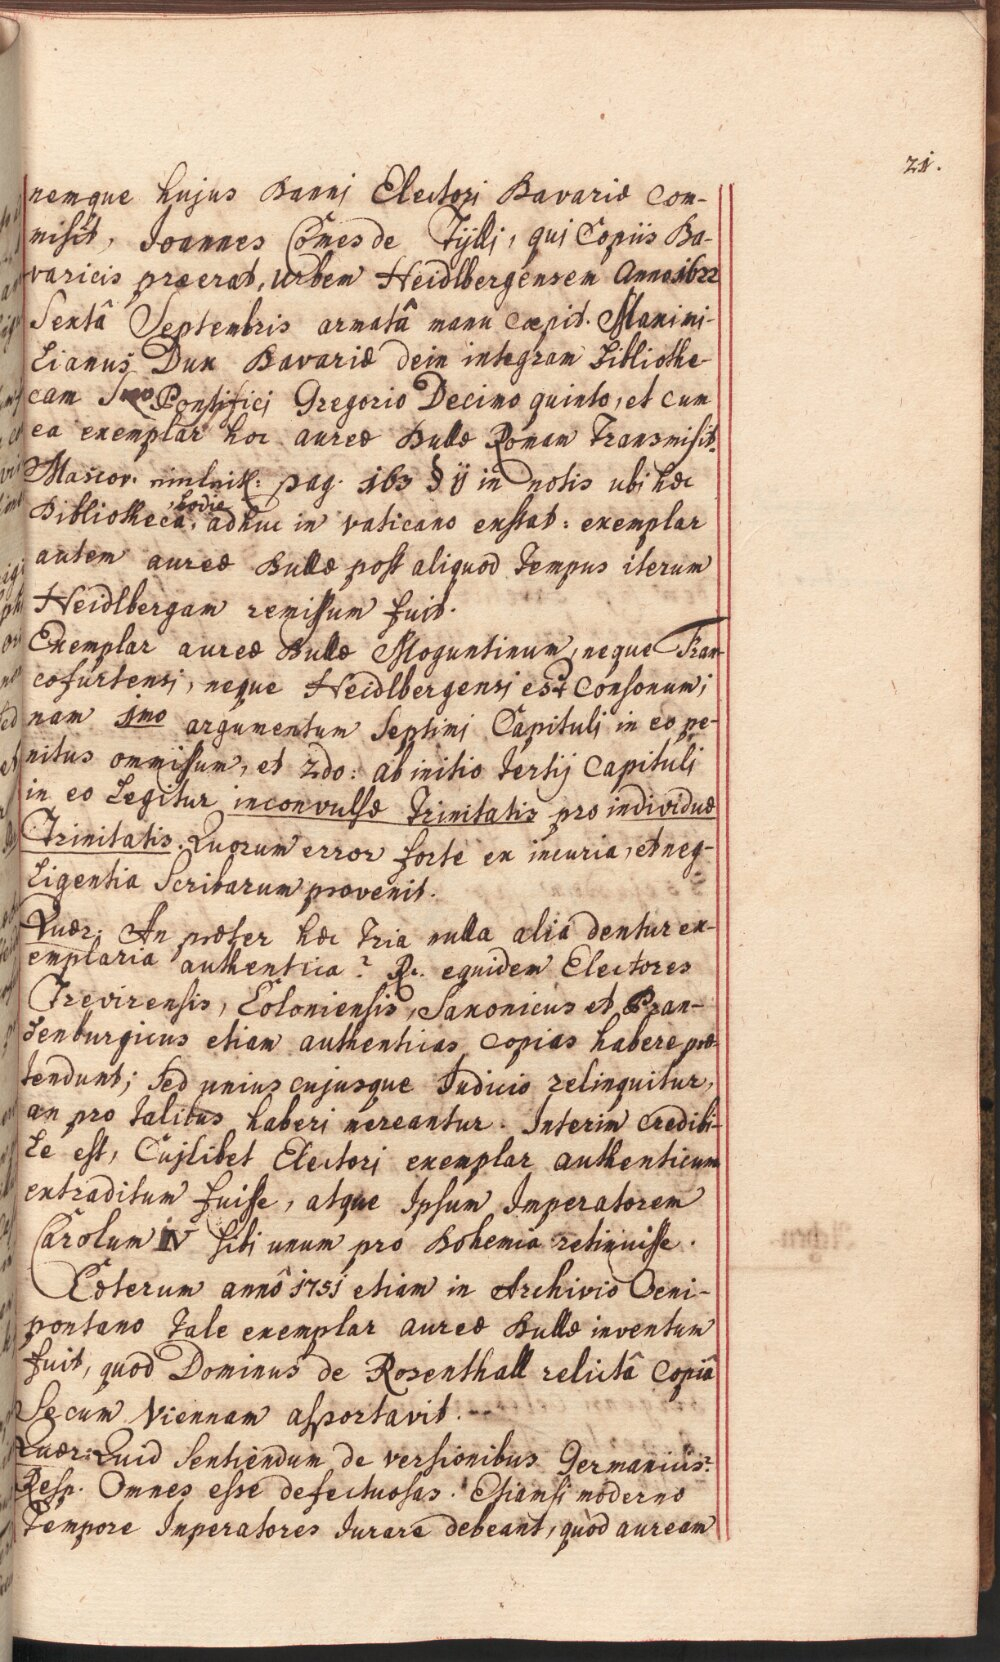 21.
nemque hujus Banni Electori Bavariæ com-
misit, Joannes Comes de Tÿlli, qui Copiis Ba-
varicis præerat, urbem Heidlbergensem Anno 1622
Sextâ Septembris armatâ manu cæpit. Maximi-
lianus Dux Bavariæ dein integram bibliothe-
cam Smo Pontifici Gregorio Decimo quinto, et cum
ea exemplar hoc aureæ Bullæ Romam transmisit.
Mascov. pag. 163 § ÿ in notis ubi hæc
Bibliotheca hodie adhuc in vaticano exstat: exemplar
autem aureæ Bullæ post aliquod tempus iterum
Heidlbergam remissum fuit.
Exemplar aureæ Bullæ Moguntinum, neque Fran-
cofurtensi, neque Heidlbergensi est Consonum;
nam 1mo argumentum Septimi Capituli in eo pe-
nitus ommissum, et 2do: ab initio tertij Capituli
in eo Legitur inconvulsæ Trinitatis pro individuæ
Trinitatis. Quorum error forte ex incuria, et neg-
ligentia Scribarum provenit.
Quær: An præter hæc tria nulla alia dentur ex-
emplaria authentica? R. equidem Electores
Trevirensis, Coloniensis, Saxonicus et Bran-
denburgicus etiam authenticas copias habere præ-
tendunt; sed unius cujusque Judicio relinquitur,
an pro talibus haberi mereantur. Interim credibi-
le est, Cujlibet Electori exemplar authenticum
extraditum fuisse, atque Ipsum Imperatorem
Carolum IV sibi unum pro Bohemia retinuisse.
Cæterum annô 1751 etiam in Archivio Oeni-
pontano tale exemplar aureæ Bullæ inventum
fuit, quod Dominus de Rosenthall relictâ Copiâ
Secum Viennam asportavit.
Quær: Quid Sentiendum de versionibus Germanicis?
Resp. Omnes esse defectuosas. Etiamsi moderno
tempore Imperatores Jurare debeant, quòd auream